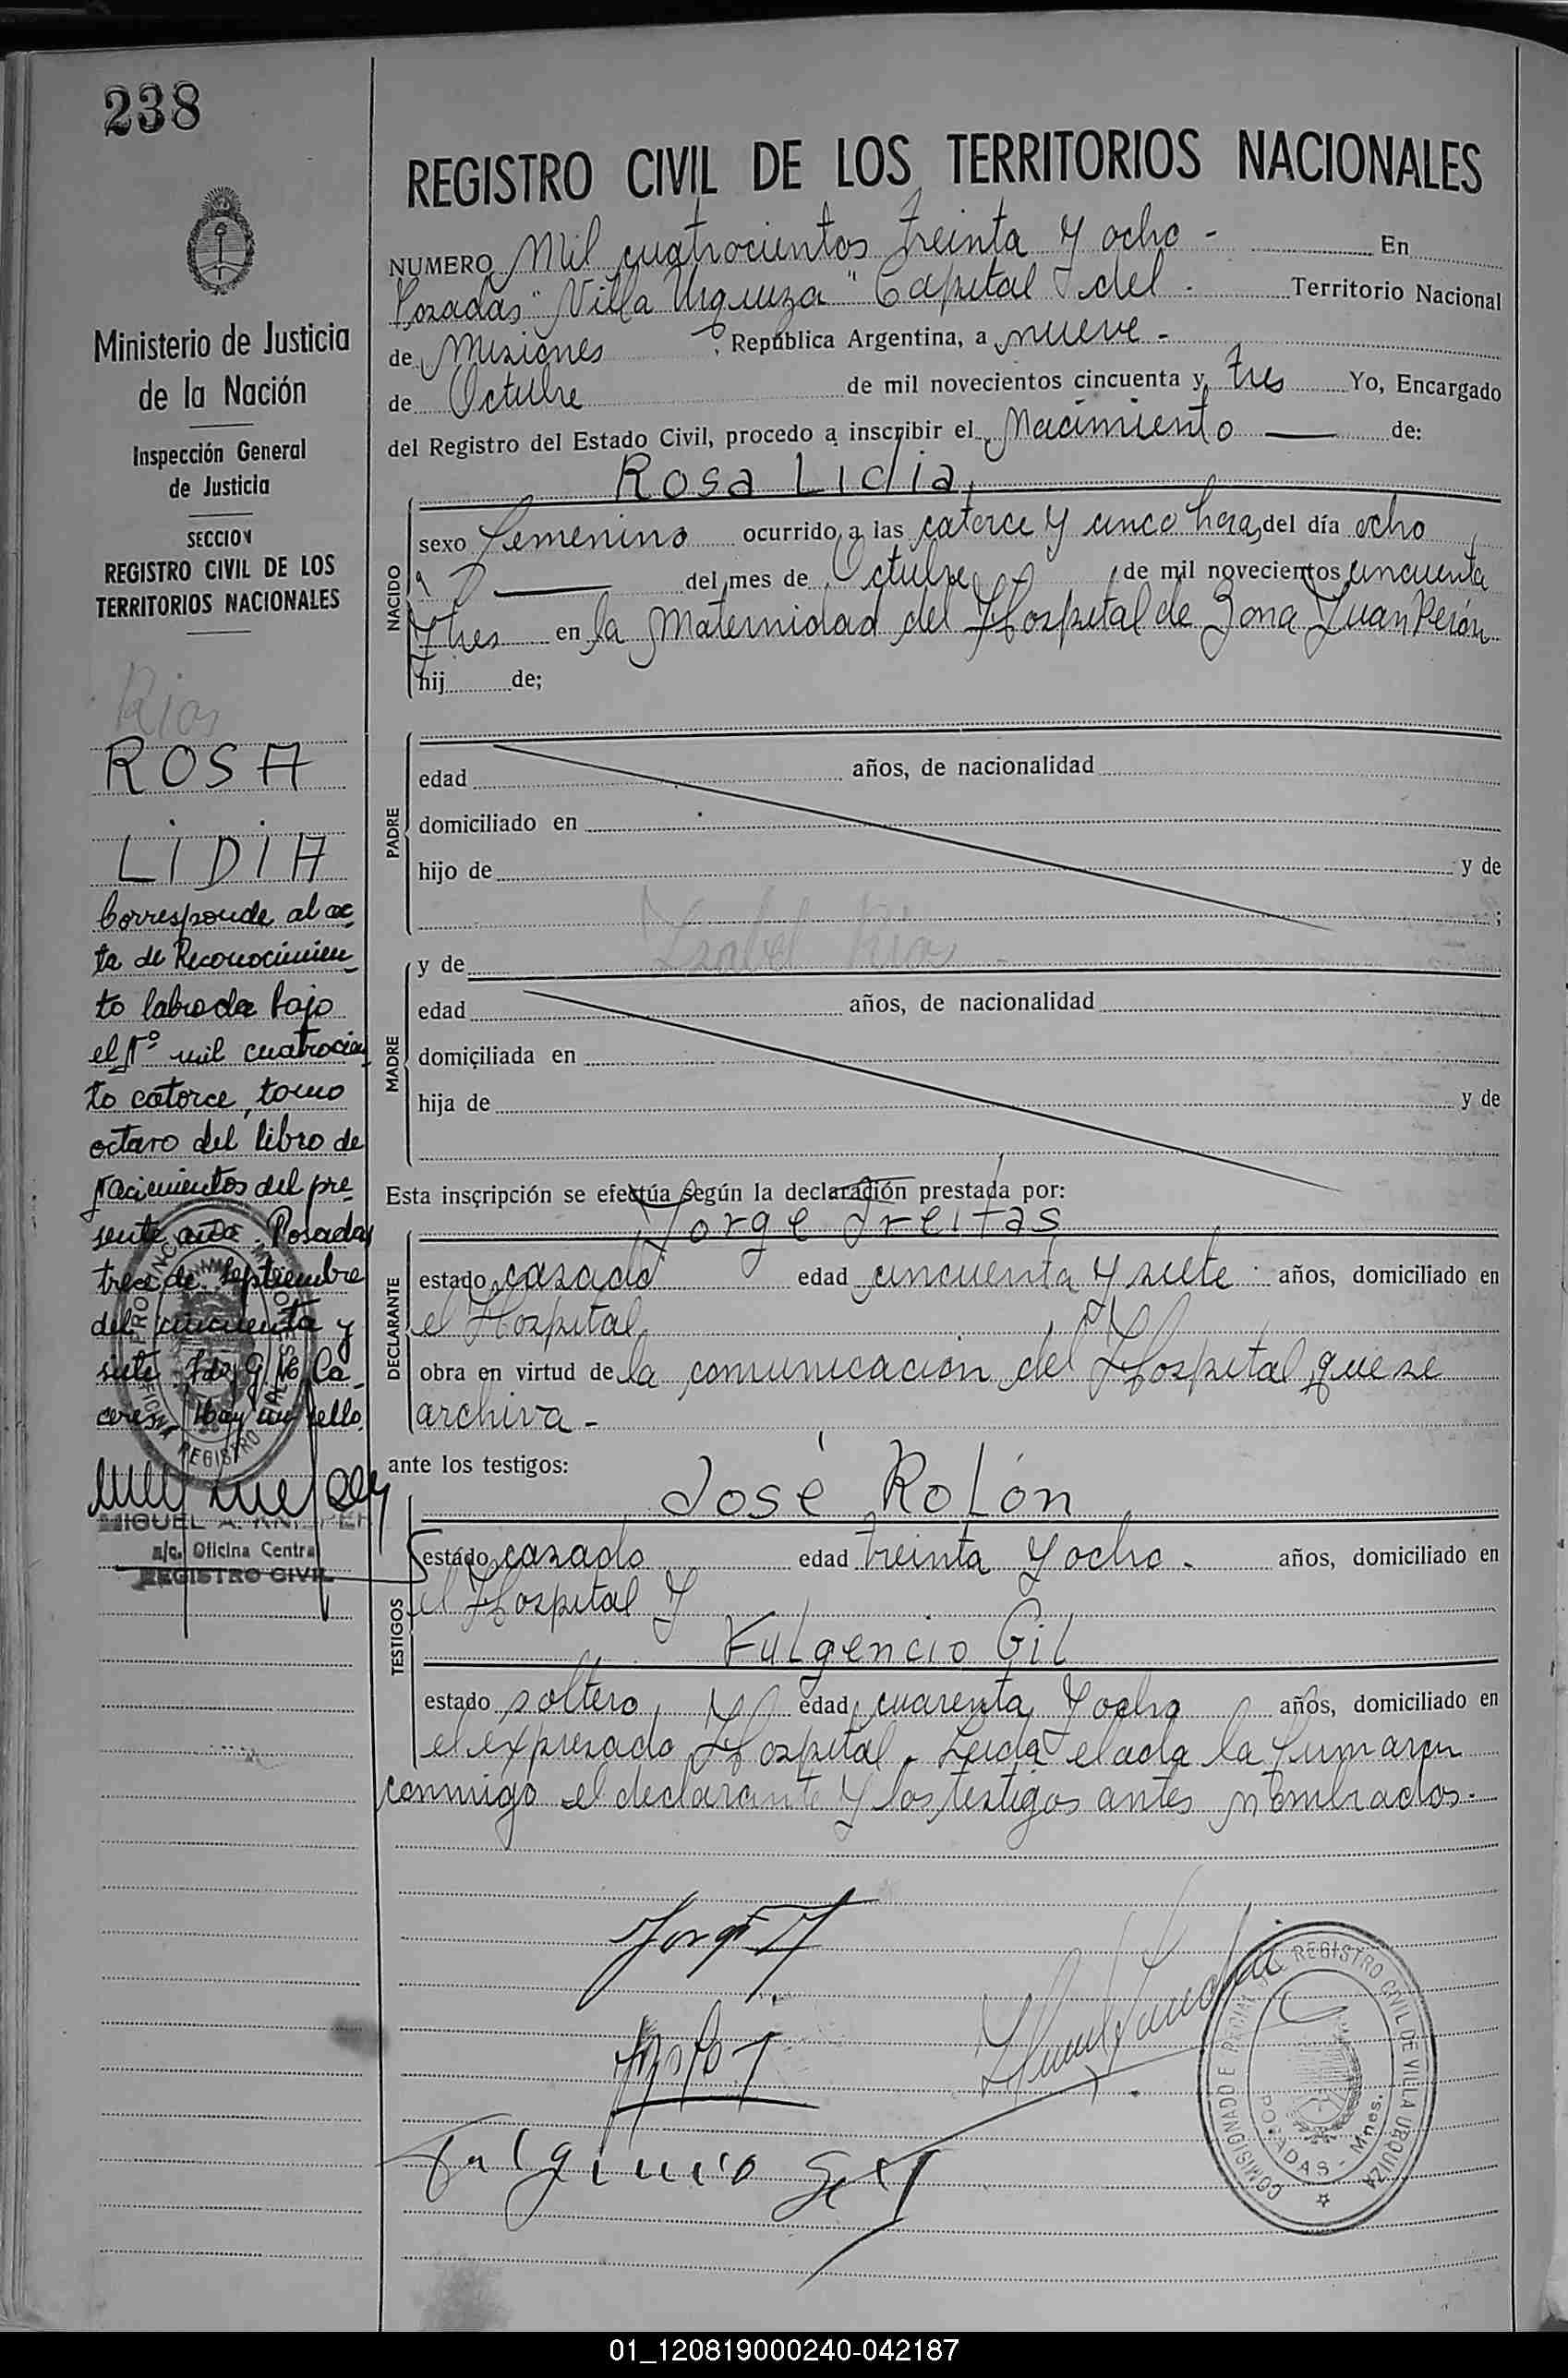 238
Ministerio de Justicia
de la Nación
Inspección General
de Justicia
SECCION
REGISTRO CIVIL DE LOS
TERRITORIOS NACIONALES
Rios
ROSA
LIDIA
Corresponde al ac
ta de Reconocimien
to labrada bajo
el Nº mil cuatrocien
to catorce, tomo
octavo del libro de
nacimientos del pre
sente año. Posadas
trece de Septiembre
del cincuenta y
siete. Fdo. G. Ca
ceres. Hay un sello.
MIGUEL A.
a/c. Oficina Central
REGISTRO CIVIL
REGISTRO CIVIL DE LOS TERRITORIOS NACIONALES
NUMERO Mil cuatrocientos treinta y ocho - En
Posadas "Villa Urquiza" Capital del Territorio Nacional
de Misiones, República Argentina, a nueve -
de Octubre de mil novecientos cincuenta y tres Yo, Encargado
del Registro del Estado Civil, procedo a inscribir el Nacimiento — de:
Rosa Lidia,
NACIDO
sexo femenino ocurrido a las catorce y cinco hora, del día ocho
del mes de Octubre de mil novecientos cincuenta
y tres en la Maternidad del Hospital de Zona Juan Perón
hij de;
PADRE
edad años, de nacionalidad
domiciliado en
hijo de y de
;
MADRE
y de Isabel Rios
edad años, de nacionalidad
domiciliada en
hija de y de
Esta inscripción se efectúa según la declaración prestada por:
Jorge Freitas
DECLARANTE
estado casado edad cincuenta y siete años, domiciliado en
el Hospital
obra en virtud de la comunicación del Hospital que se
archiva -
ante los testigos:
José Rolón
TESTIGOS
estado casado edad treinta y ocho - años, domiciliado en
el Hospital y
Fulgencio Gil
estado soltero, edad cuarenta y ocho años, domiciliado en
el expresado Hospital. Leida el acta la firmaron
conmigo el declarante y los testigos antes nombrados.-
Fulgencio Gil
REGISTRO CIVIL DE VILLA URQUIZA
POSADAS - Mnes.
01_120819000240-042187